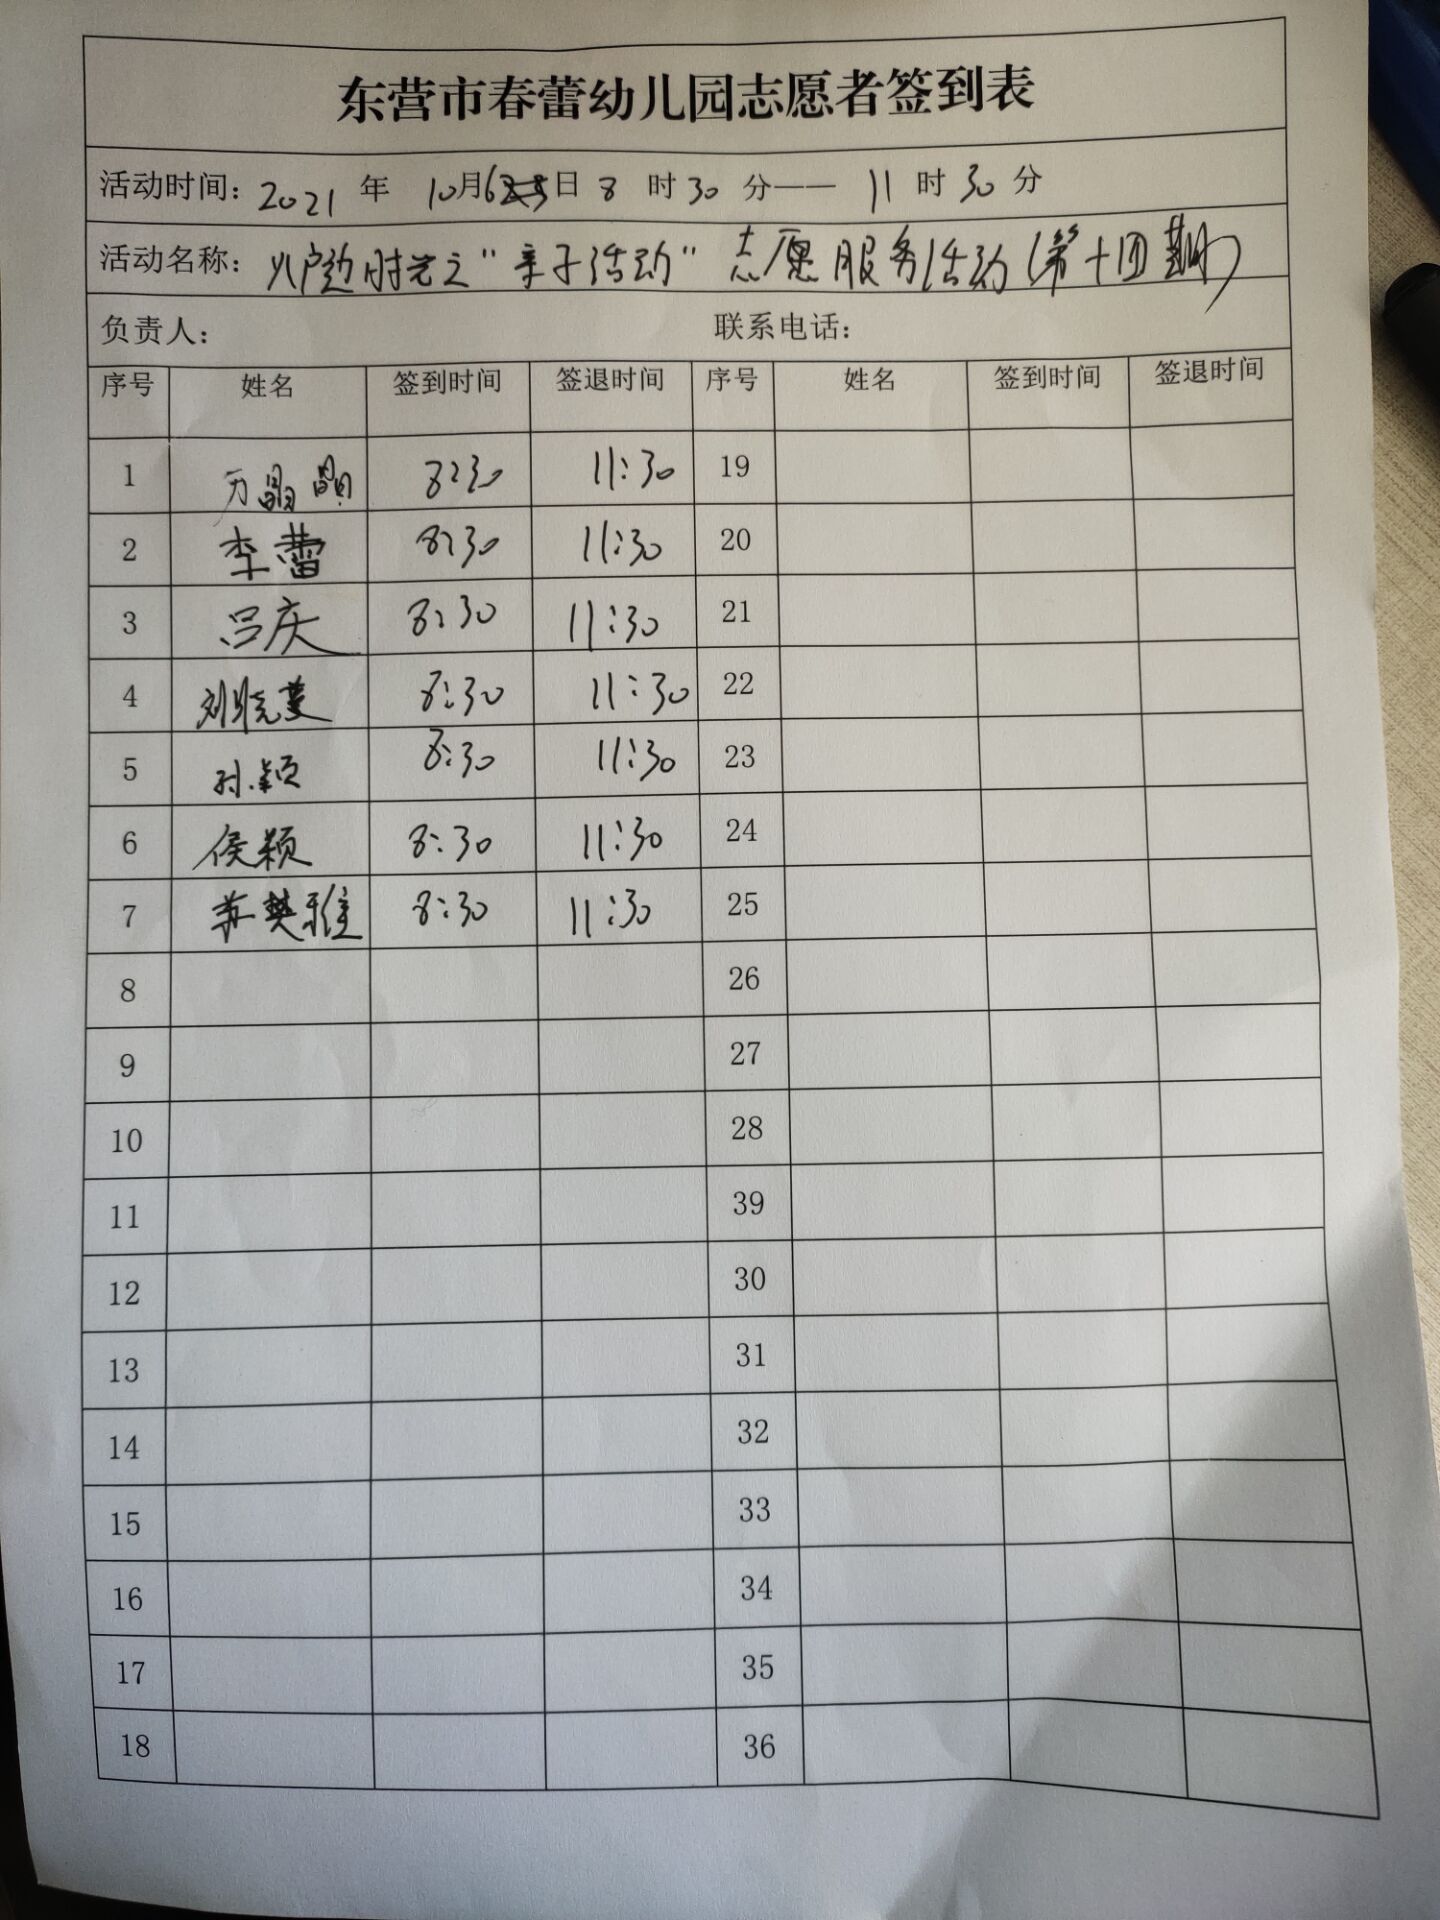 东营市春蕾幼儿园志愿者签到表
活动时间：2021 年 10月6日 8 时 30 分—— 11 时 30 分
活动名称：火炉边时光之“亲子活动”志愿服务活动（第十四期）
负责人： 联系电话：
序号 姓名 签到时间 签退时间 序号 姓名 签到时间 签退时间
1 万晶晶 8:30 11:30 19
2 李蕾 8:30 11:30 20
3 吕庆 8:30 11:30 21
4 刘晓蔓 8:30 11:30 22
5 孙颖 8:30 11:30 23
6 侯颖 8:30 11:30 24
7 苏樊雅 8:30 11:30 25
8 26
9 27
10 28
11 39
12 30
13 31
14 32
15 33
16 34
17 35
18 36